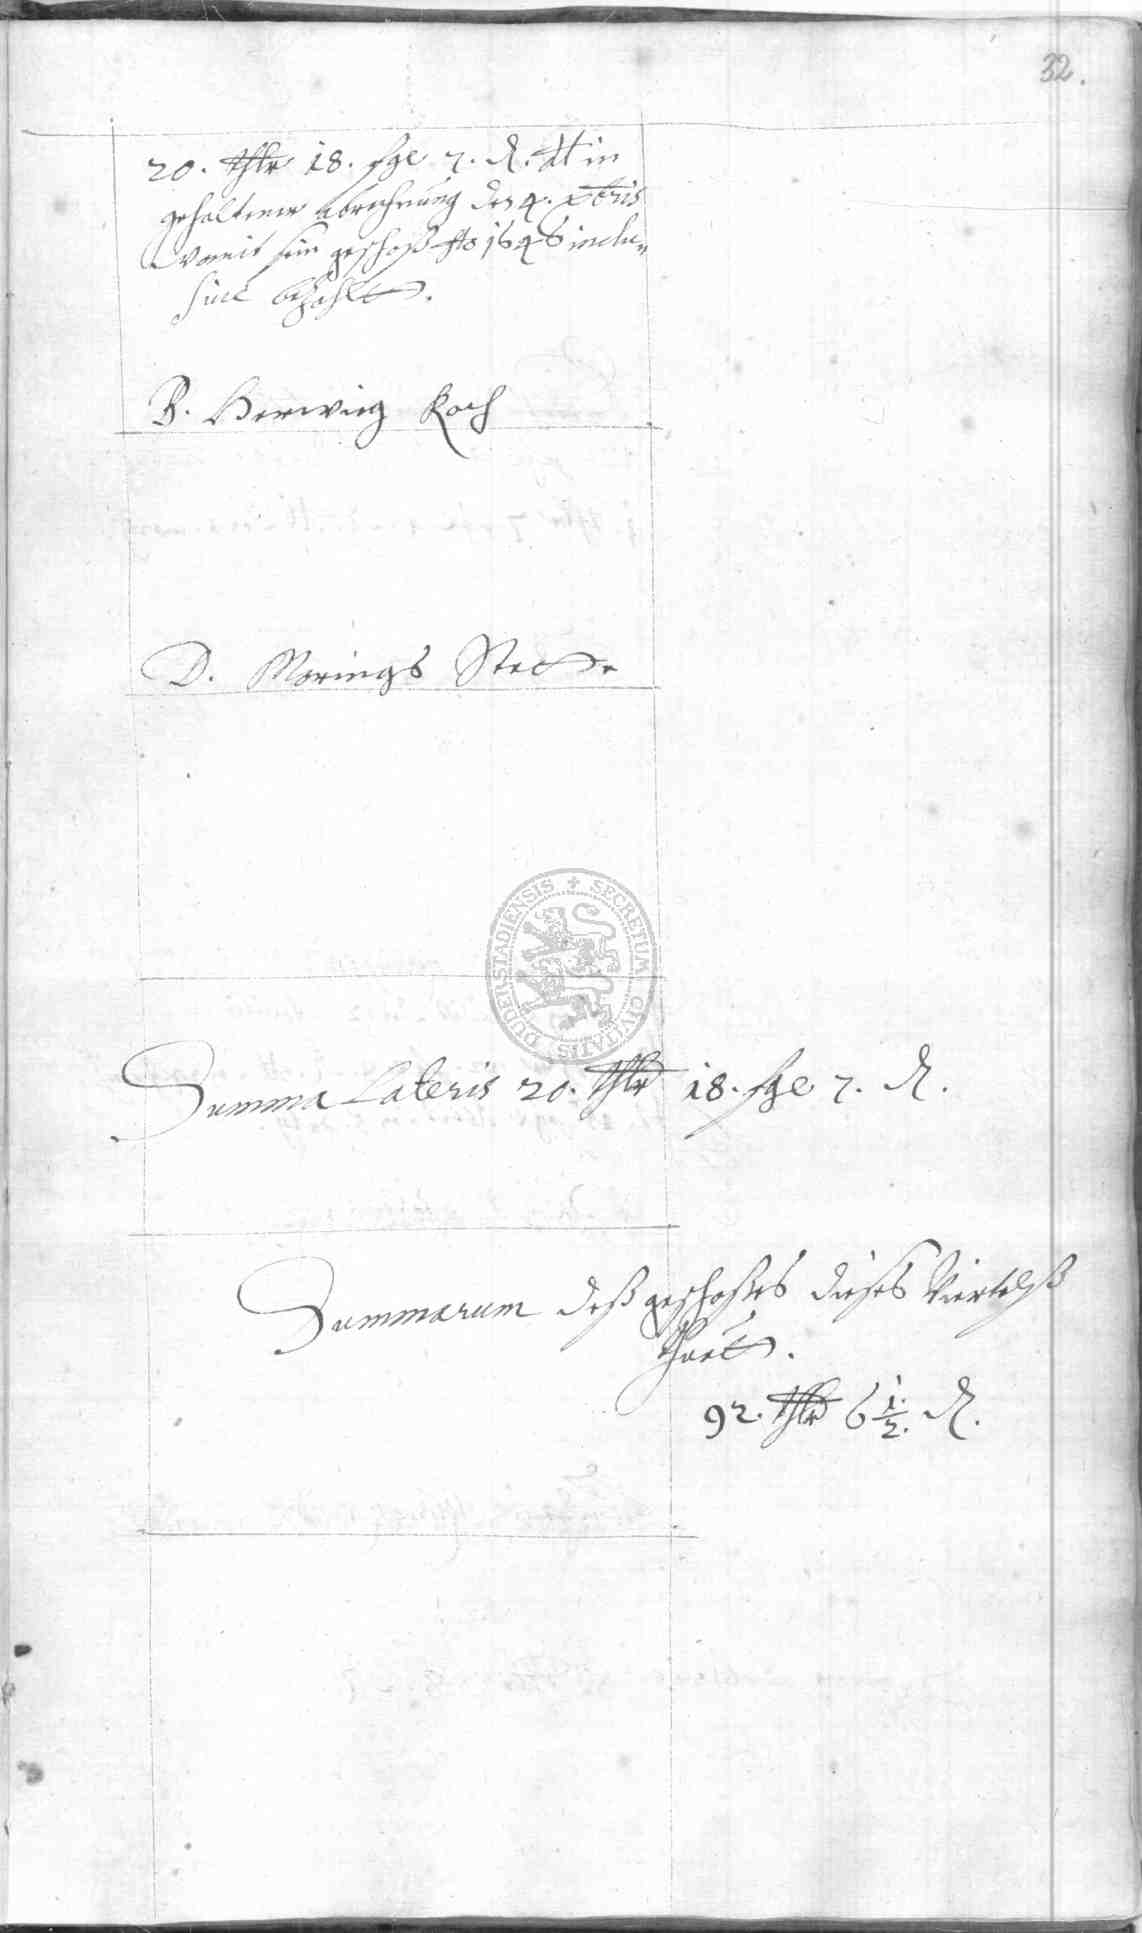 32.
20. thlr 18. ßge 7. d. dt in
gehaltener abrechnung den 4. xbris
womit sein geschoß pro 1646 inclu=
sive bezahlt.
B. Herwieg Koch
D. Morings Stedte
SECRETUM CIVITATIS DUDERSTADIENSIS
Summa Lateris 20. thlr 18. ßge 7. d.
Summarum deß geschoßes dieses Viertelß
thuet.
92. thlr 6 1/2. d.